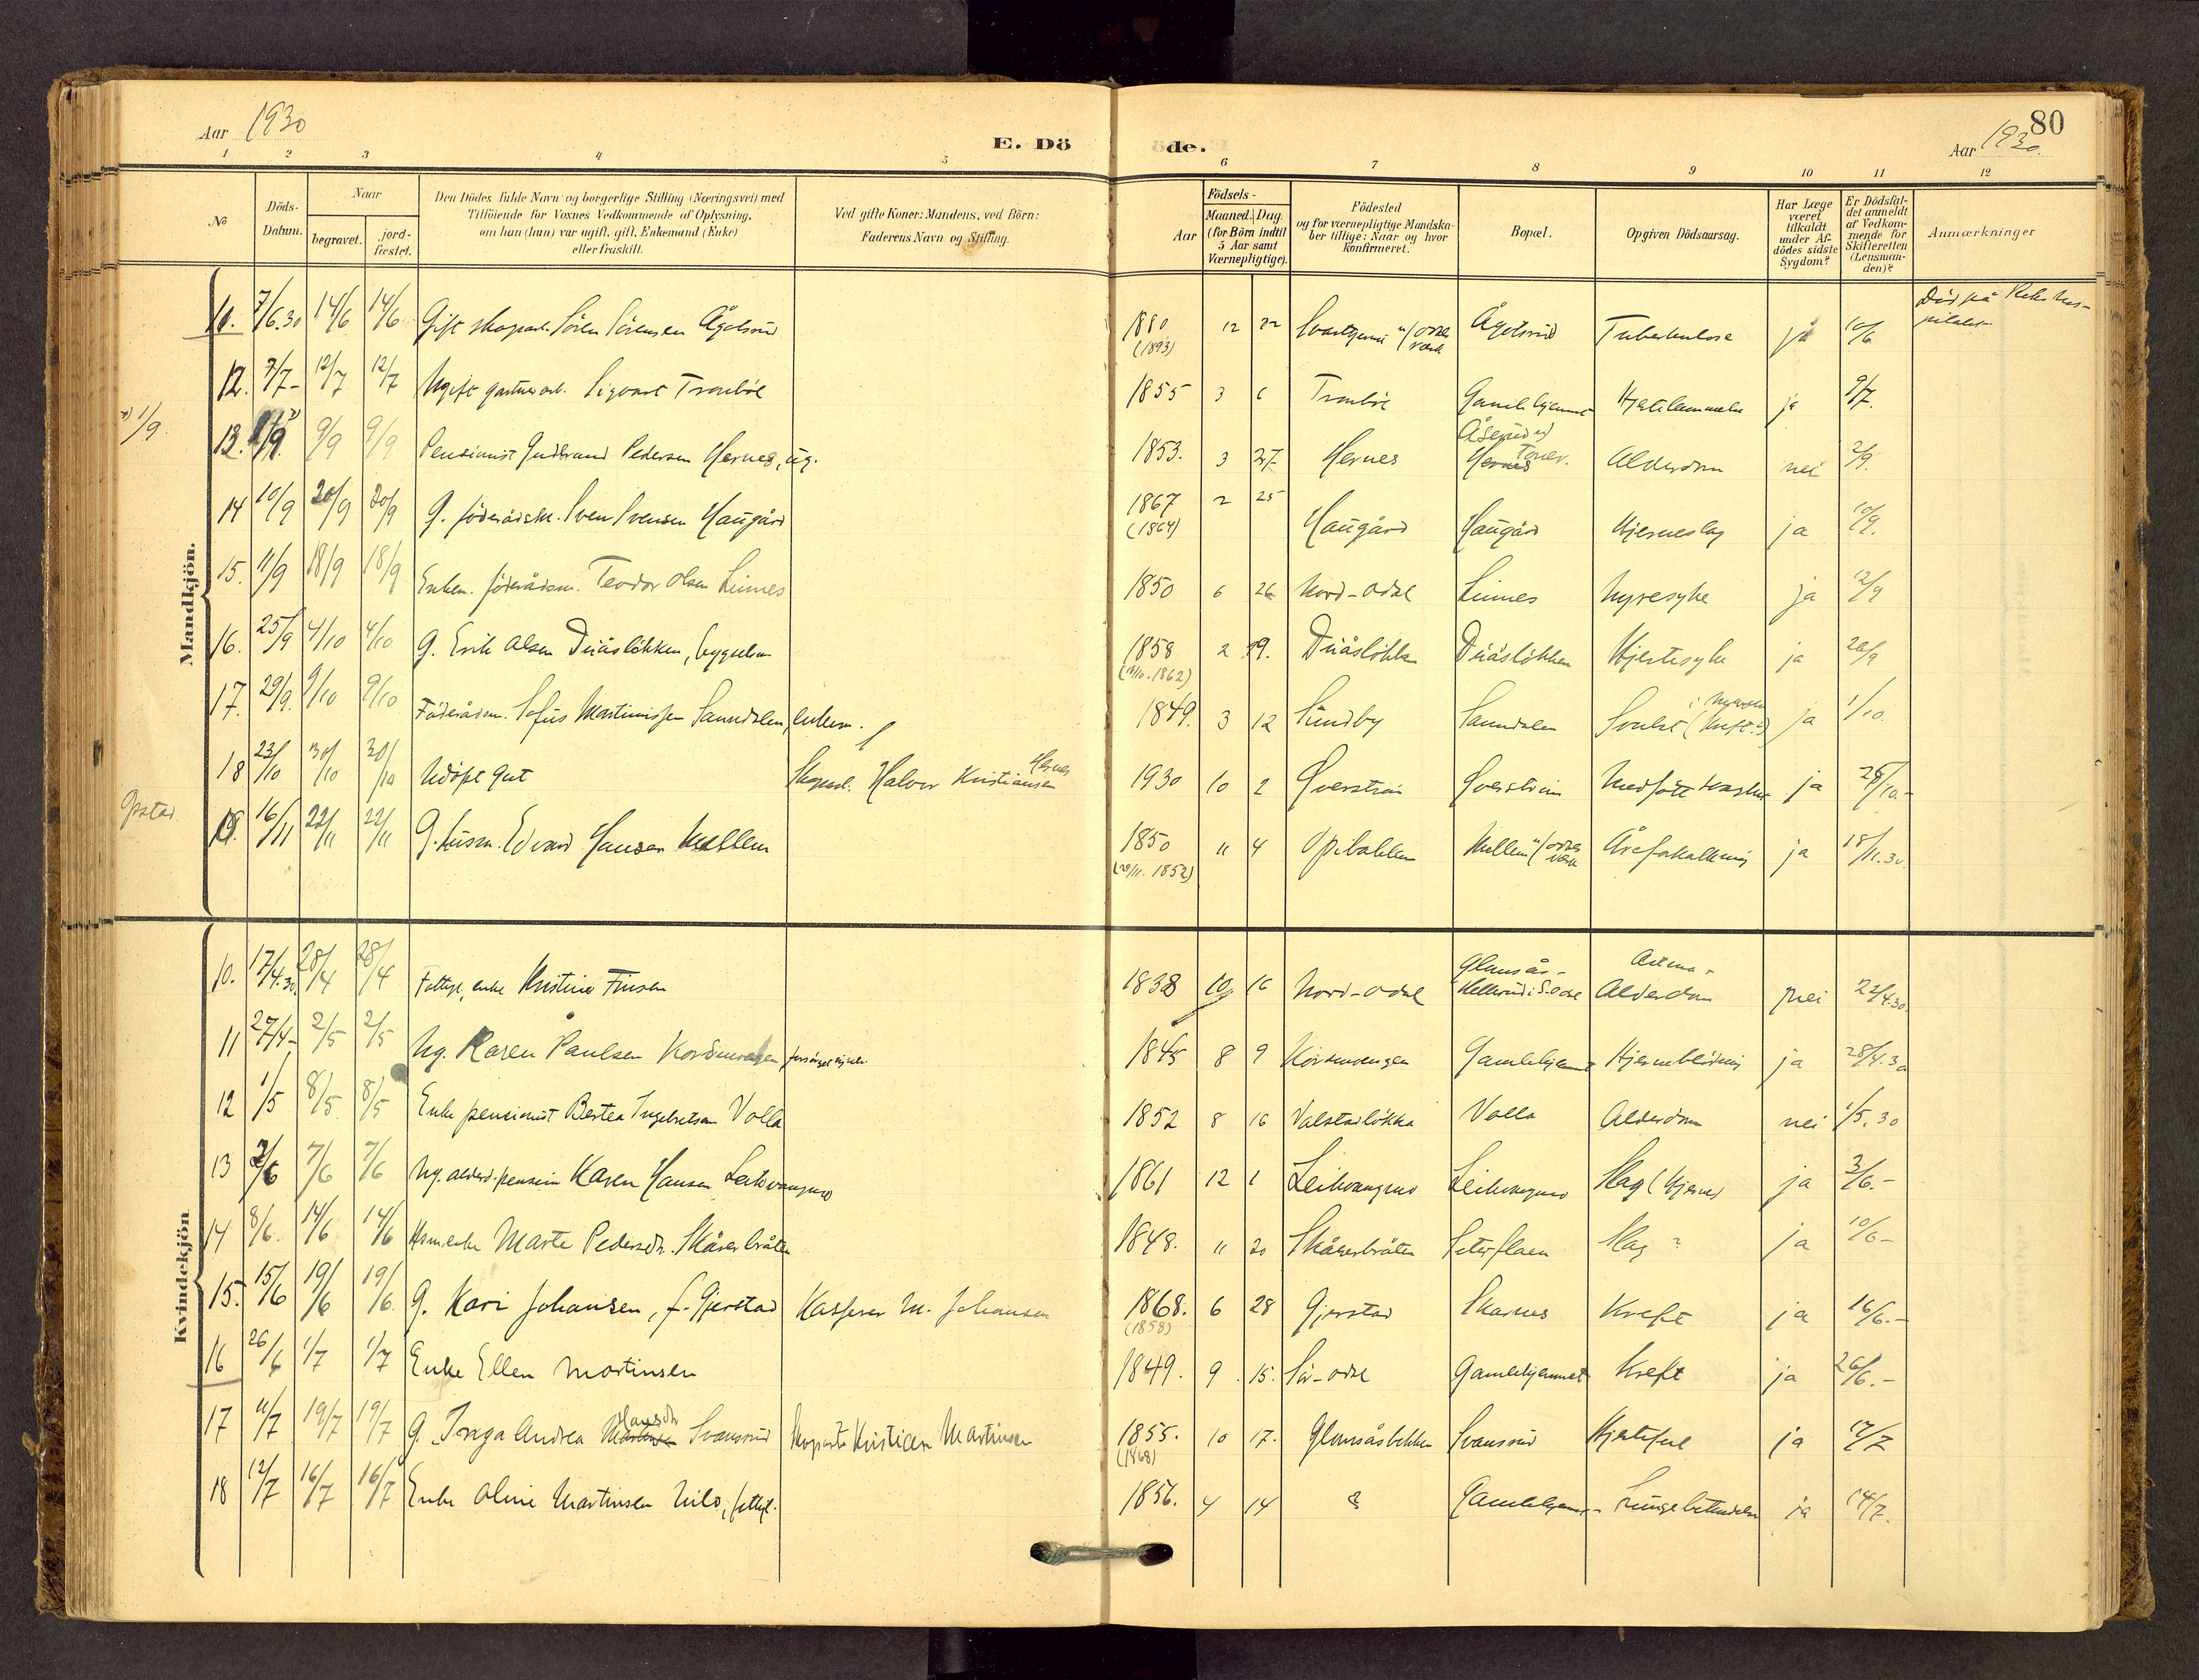 Aar 1930
E. Dö
de.
Aar 1930.
80
1 2 3 4 5 6 7 8 9 10 11 12
№
Döds-Datum.
Naar
begravet.
jord-fæstet.
Den Dödes fulde Navn og borgerlige Stilling (Næringsvei) med
Tilföiende for Voxnes Vedkommende af Oplysning,
om han (hun) var ugift, gift, Enkemand (Enke)
eller fraskilt.
Ved gifte Koner: Mandens, ved Börn:
Faderens Navn og Stilling.
Födsels-
Aar
Maaned. Dag.
(for Börn indtil
5 Aar samt
Værnepligtige).
Födested
og for værnepligtige Mandska-
ber tillige: Naar og hvor
konfirmeret.
Bopæl.
Opgiven Dödsaarsag.
Har Læge
været
tilkaldt
under Af-
dödes sidste
Sygdom?
Er Dödsfal-
det anmeldt
af Vedkom-
mende for
Skifteretten
(Lensman-
den)?
Anmærkninger
Mandkjön.
11. 7/6.30 14/6 14/6 Gift skogsarb. Sören Sörensen Ågotsrud 1880 (1893) 12 22 Ågotsrud Tuberkulose ja 10/6 Död på Riks hos-
pitalet
12. 7/7- 12/7 12/7 Ugift gartnerarb. Sigvart Tronböl 1855 3 6 Tronböl Gamlehjemmet ja 9/7.
x) 1/9.
13. 1/9. 9/9 9/9 Pensionist Gudbrand Pedersen Hernes, ug. 1853. 3 27 Hernes Åserud Hernes Alderdom nei 2/9.
14 10/9 20/9 20/9 G. föderådsm. Sven Svensen Haugård 1867 (1864) 2 25 Haugård Haugård Hjerneslag ja 10/9.
15. 11/9 18/9 18/9 Enkem. föderådsm. Teodor Olsen Linnes 1850 6 26 Nord-Odal Linnes Nyresyke ja 12/9
16. 25/9 4/10 4/10 G. Erik Olsen Duåslökken, 1858 1862) 2 19. Duåslökken Duåslökken Hjertesyke ja 26/9
17. 29/9. 9/10 9/10 Föderådsm. Sofus Martinussen Sanndalen, enkem. 1849. 3 12 Sundby Sanndalen Svulst i nyrene (kreft?) ja 1/10.
18 23/10 30/10 30/10 Udöpt gut Skogsarb. Halvor Kristiansen Hernes 1930 10 2 Medfött ja 28/10.-
Opstad.
19. 16/11 22/11 22/11 G. husm. Edvard Hansen Mellem 1850 (20/11. 1852) 11 4 Opibakken Mellem u/Odals verk Åreforkalkning ja 18/11.30.
Kvindekjön
10. 17/4.30 28/4 28/4 Fattigl. enke Kristine Finsen 1838 10 16 Nord-Odal Glomsås- i S. Odal Astma. Alderdom nei 22/4.30.
11 27/4- 2/5 2/5 Ug. Karen Paulsen Korsmoengen 1845 8 9 Korsmoengen Gamlehjemmet Hjerneblödning ja 28/4.30
12 1/5 8/5. 8/5 Enke pensionist Bertea Ingebretsen Volla 1852 8 16 Valstadlökka Volla Alderdom nei 1/5.30
13 2/6 7/6 7/6 Ug. alderd.pension Karen Hansen Leikvangmo 1861 12 1 Leikvangmo Leikvangmo Slag (Hjerne) ja 3/6.-
14 8/6. 14/6 14/6 Marte Pedersdr. Skårerbråten 1848. 11 20 Skårerbråten Seterflaen Slag ? ja 10/6-
15. 15/6 19/6 19/6. G. Kari Johansen, f. Gjerstad Kasserer M. Johansen 1868. (1858) 6 28 Gjerstad Skarnes Kreft ja 16/6.-
16 26/6 1/7 1/7 Enke Ellen Martinsen 1849. 9 15. Sör-Odal Gamlehjemmet Kreft ja 26/6.-
17 11/7 19/7 19/7 G. Inga Andrea Martinsen Hansdr Svansrud Kristian Martinsen 1855. (1868) 10 17. Glomsåsbekken Svansrud Hjertefeil ja 12/7
18 12/7 16/7 16/7 Enke Oline Martinsen Milo, fattigl. 1856. 4 14 ? Gamlehjem- Lungebetendelse ja 14/7.